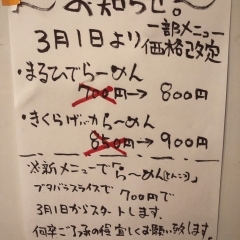 〜お知らせ〜
3月1日より 一部メニュー価格改定
・まるひでらーめん
700円→800円
・きくらげバカらーめん
850円→900円
※新メニューで「らーめん(とんこつ)
ブタバラスライスで700円で
3月1日からスタートします。
何卒ご了承の程宜しくお願い致します。